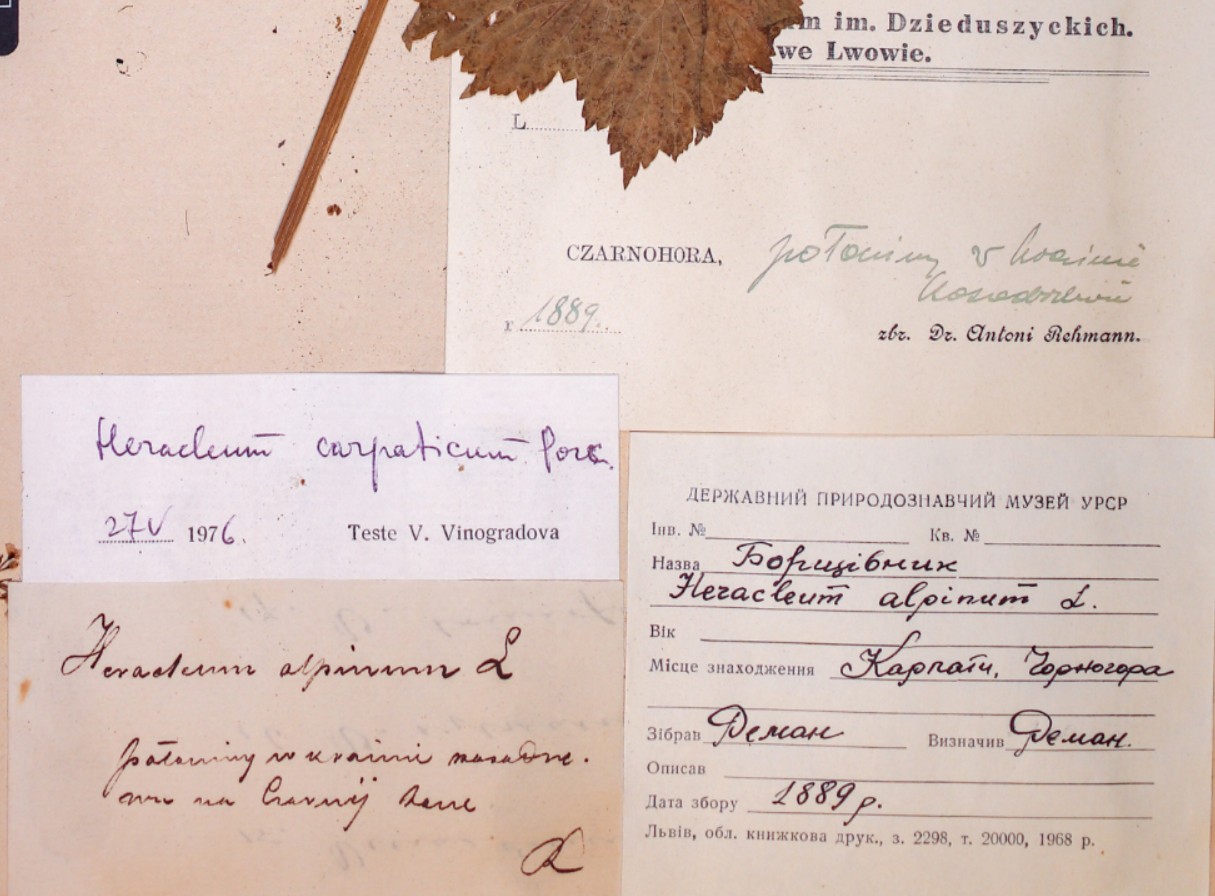 im. Dzieduszyckich.
we Lwowie.
L
CZARNOHORA, połoniny w krainie
r 1889.
zbr. Dr. Antoni Rehmann.
Heracleum carpaticum Porc.
27 V 1976.
Teste V. Vinogradova
Heracleum alpinum L
połoniny w krainie
na
R
ДЕРЖАВНИЙ ПРИРОДОЗНАВЧИЙ МУЗЕЙ УРСР
Інв. № Кв. №
Назва Борщівник
Heracleum alpinum L.
Вік
Місце знаходження Карпати, Чорногора
Зібрав Реман Визначив Реман.
Описав
Дата збору 1889 р.
Львів, обл. книжкова друк., з. 2298, т. 20000, 1968 р.